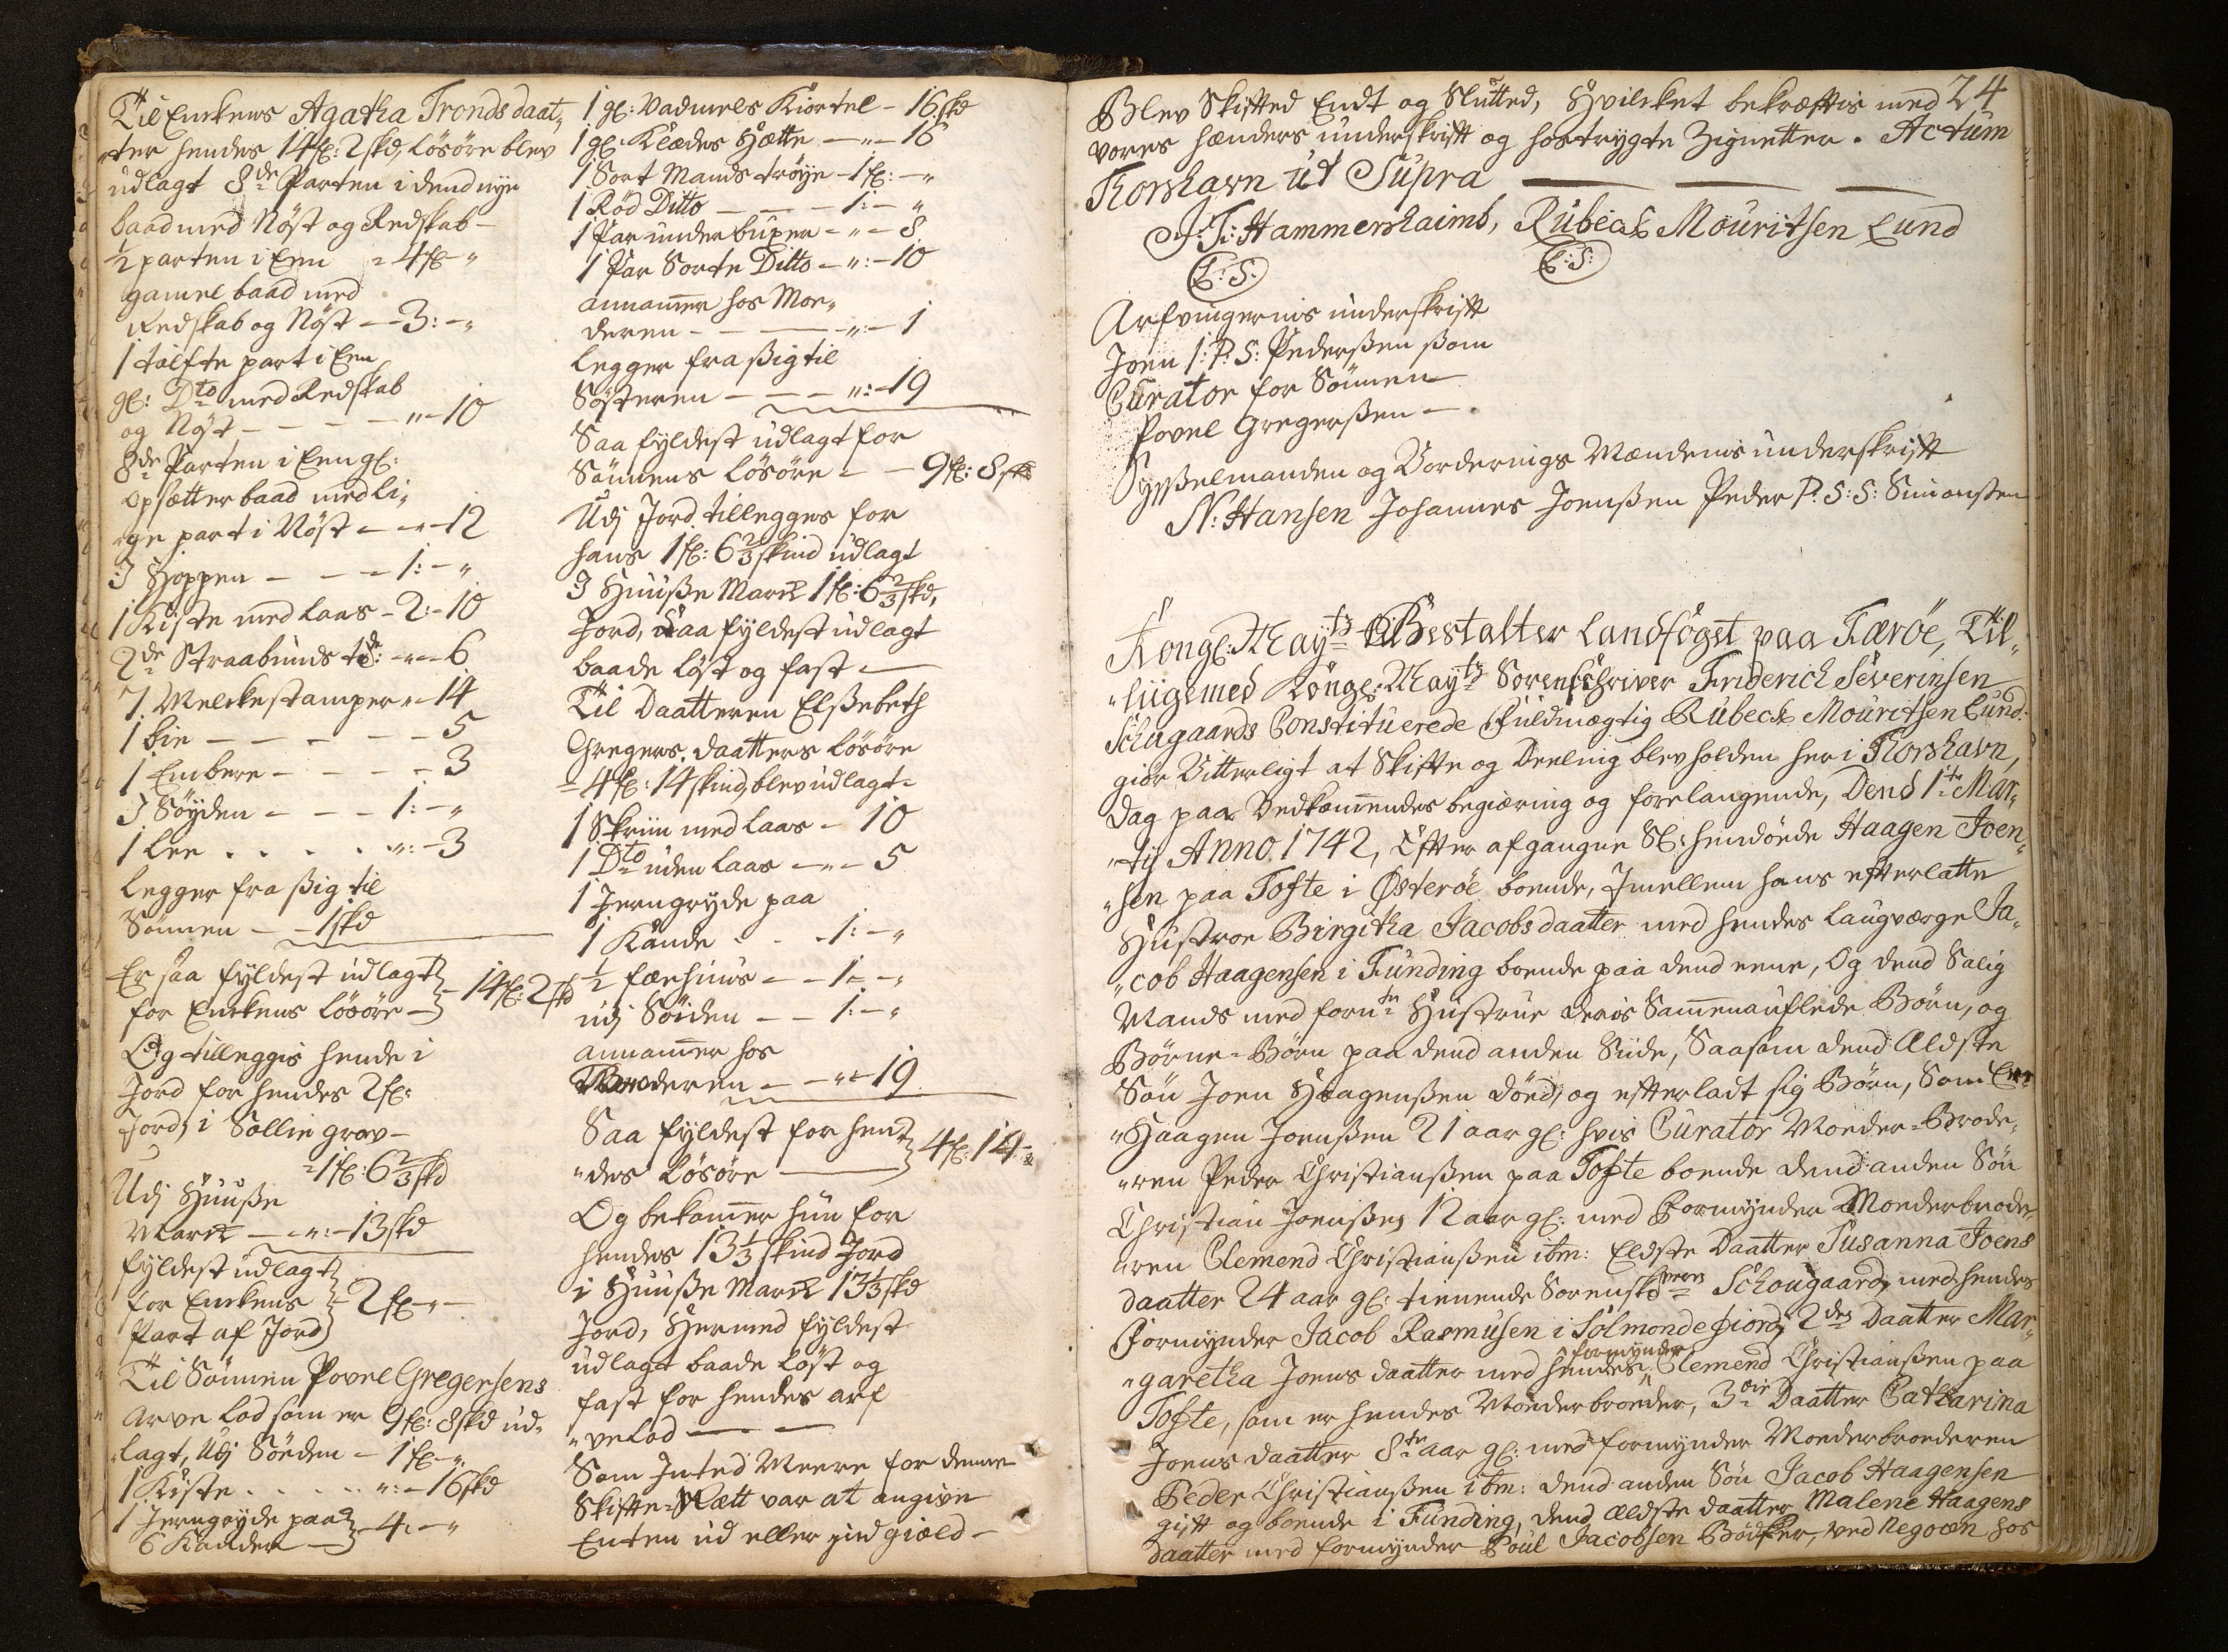 Til Enckens Agatha Tronds daat„
„ter hendes 14 fl: 2 skd, Løsøre blev
udlagt 8de Parten i dend nye
baad med Nøst og Redskab –
½ parten i Een = 4 fl – „
gamel baad med
Redskab og Nøst – – 3: – „
1 tolfte part i Een
gl: Dto med Redskab
og Nøst – – – – „ – 10
8de Parten i Een gl:
opsætter baad med li„
„ge part i Nøst – „ – 12
J Hoppen – – – 1: – „
1 Kiste med Laas – 2: – 10
2de Straabunds – „ – 6
7 Melckestamper „ – 14
1 bie – – – – – 5
1 Embere – – – – 3
J Søyden – – – 1: – „
1 Lee . . . . „: – 3
Legger fra sig til
Sønnen – – 1 skd
Er saa fyldest udlagt
for Enckens Løsøre – 14 fl: 2 skd
Og tilleggis hende i
Jord for hendes 2 fl:
Jord, i Sollie grov –
= 1 fl: 6⅔ skd
Udj Huuse
Marck – „: – 13 skd
fyldest udlagt
for Enckens – 2 fl – „ –
Part af Jord
Til Sønnen Povel Gregersens
Arve Lod som er 9 fl: 8 skd ud„
„lagt, Udj Søeden – 1 fl – „
1 Kiste . . . . „: – 16 skd
1 Jerngryde paa
6 Kander – 4. – „
1 gl: Vadmels Kiortel – 16 skd
1 gl: Klædes Hætte – „ – 16
1 Sort Mands trøye – 1 fl: – „
1 Rød Ditto – – – 1: – „
1 Par under buxer – „ – 8
1 Par Sorte Ditto – „: – 10
annamer hos Moe„
deren – – – – „: – 1
Legger fra sig til
Søsteren – – – „: – 19
Saa fyldest udlagt for
Sønnens Løsøre – – 9 fl: 8 skd
Udj Jord tillegges for
hans 1 fl: 6⅔ skind udlagt
J Huuse Marck 1 fl: 6⅔ skd,
Jord, Saa fyldest udlagt
baade Løst og fast –
Til Daatteren Elsebeth
Gregers. daatters Løsøre
= 4 fl: 14 skind, blev udlagt =
1 Skriin med Laas – 10
1 Dto uden Laas – „ – 5
1 Jerngryde paa
1 Kande . . – 1: – „
½ færhuus – – 1 – „
udj Søiden – – 1: – „
annamer hos
Broderen – – „ – 19
Saa fyldest for hen
„des Løsøre – 4 fl: 14 –
Og bekommer hun for
hendes 13⅓ skind Jord
i Huuse Marck 13⅓ skd
Jord, Hermed fyldest
udlagt baade Løst og
fast for hendes arf
„ve Lod – –
Som Inted Meere for denne
Skifte-Rætt var at angive
Enten ud eller ind giæld –
24
Blev Skifted Endt og Slutted, Hvilcket bekræftis med
vores hænders underskrift og hostrygte Zignetter. Actum
Thorshavn ut Supra
J: T: Hammershaimb, Rubeck Mouritsen Lund
L: S: L: S:
Arfvingernis underskrift
Joen I: P: S: Pedersen som
Curator for Sønnen
Povel Gregersen –
Sysselmanden og Vorderings Mændenis underskrift
N: Hansen Johannes Joensen Peder P: S: S: Simonsen
Kongl: Mayts Bestalter Landfoget paa Færøe, Til„
„liigemed Kongl: Mayts Sorenschriver Friderich Severinsen
Schugaards Constituerede Fuldmægtig Rubeck Mouritsen Lund:
giør Vitterligt at Skifte og Deeling blev holden her i Thorshavn,
Dag paa Vedkommendes begiæring og forelangende, Dend 1te Mar„
„tij Anno 1742, Efter afgangne Sl: hendøede Haagen Joen„
„sen paa Tofte i Østerøe boende, Imellem hans efterlatte
Hustroe Birgitha Jacobs daatter med hendes Laugværge Ja„
„cob Haagensen i Funding boende paa dend eene, Og dend Salig
Mands med fornte Hustrue deris Sammenauflede Børn, og
Børne-Børn paa dend anden Siide, Saasom dend Ældste
Søn Joen Haagensen døed, og efterladt sig Børn, Som Er
„Haagen Joensen 21 aar gl: hvis Curator Moeder-Brode„
„ren Peder Christiansen paa Tofte boende dend anden Søn
Christian Joensen 12 aar gl: med Formynder Moederbrode„
„ren Clemend Christiansen ibm: Eldste Daatter Susanna Joens
daatter 24 aar gl: tienende Sorenskverns Schougaard, med hendes
Formynder Jacob Rasmusen i Solmondefiord, 2den Daatter Mar„
„garetha Joens daatter med hendes formynder Clemend Christiansen paa
Tofte, som er hendes Moederbroeder, 3die Daatter Catharina
Joens daatter 8te aar gl: med formynder Moederbroederen
Peder Christiansen ibm: dend anden Søn Jacob Haagensen
gift og boende i Funding, dend Ældste daatter Malene Haagens
daatter med formynder Poul Jacobsen Bødker, ved Negocen hos